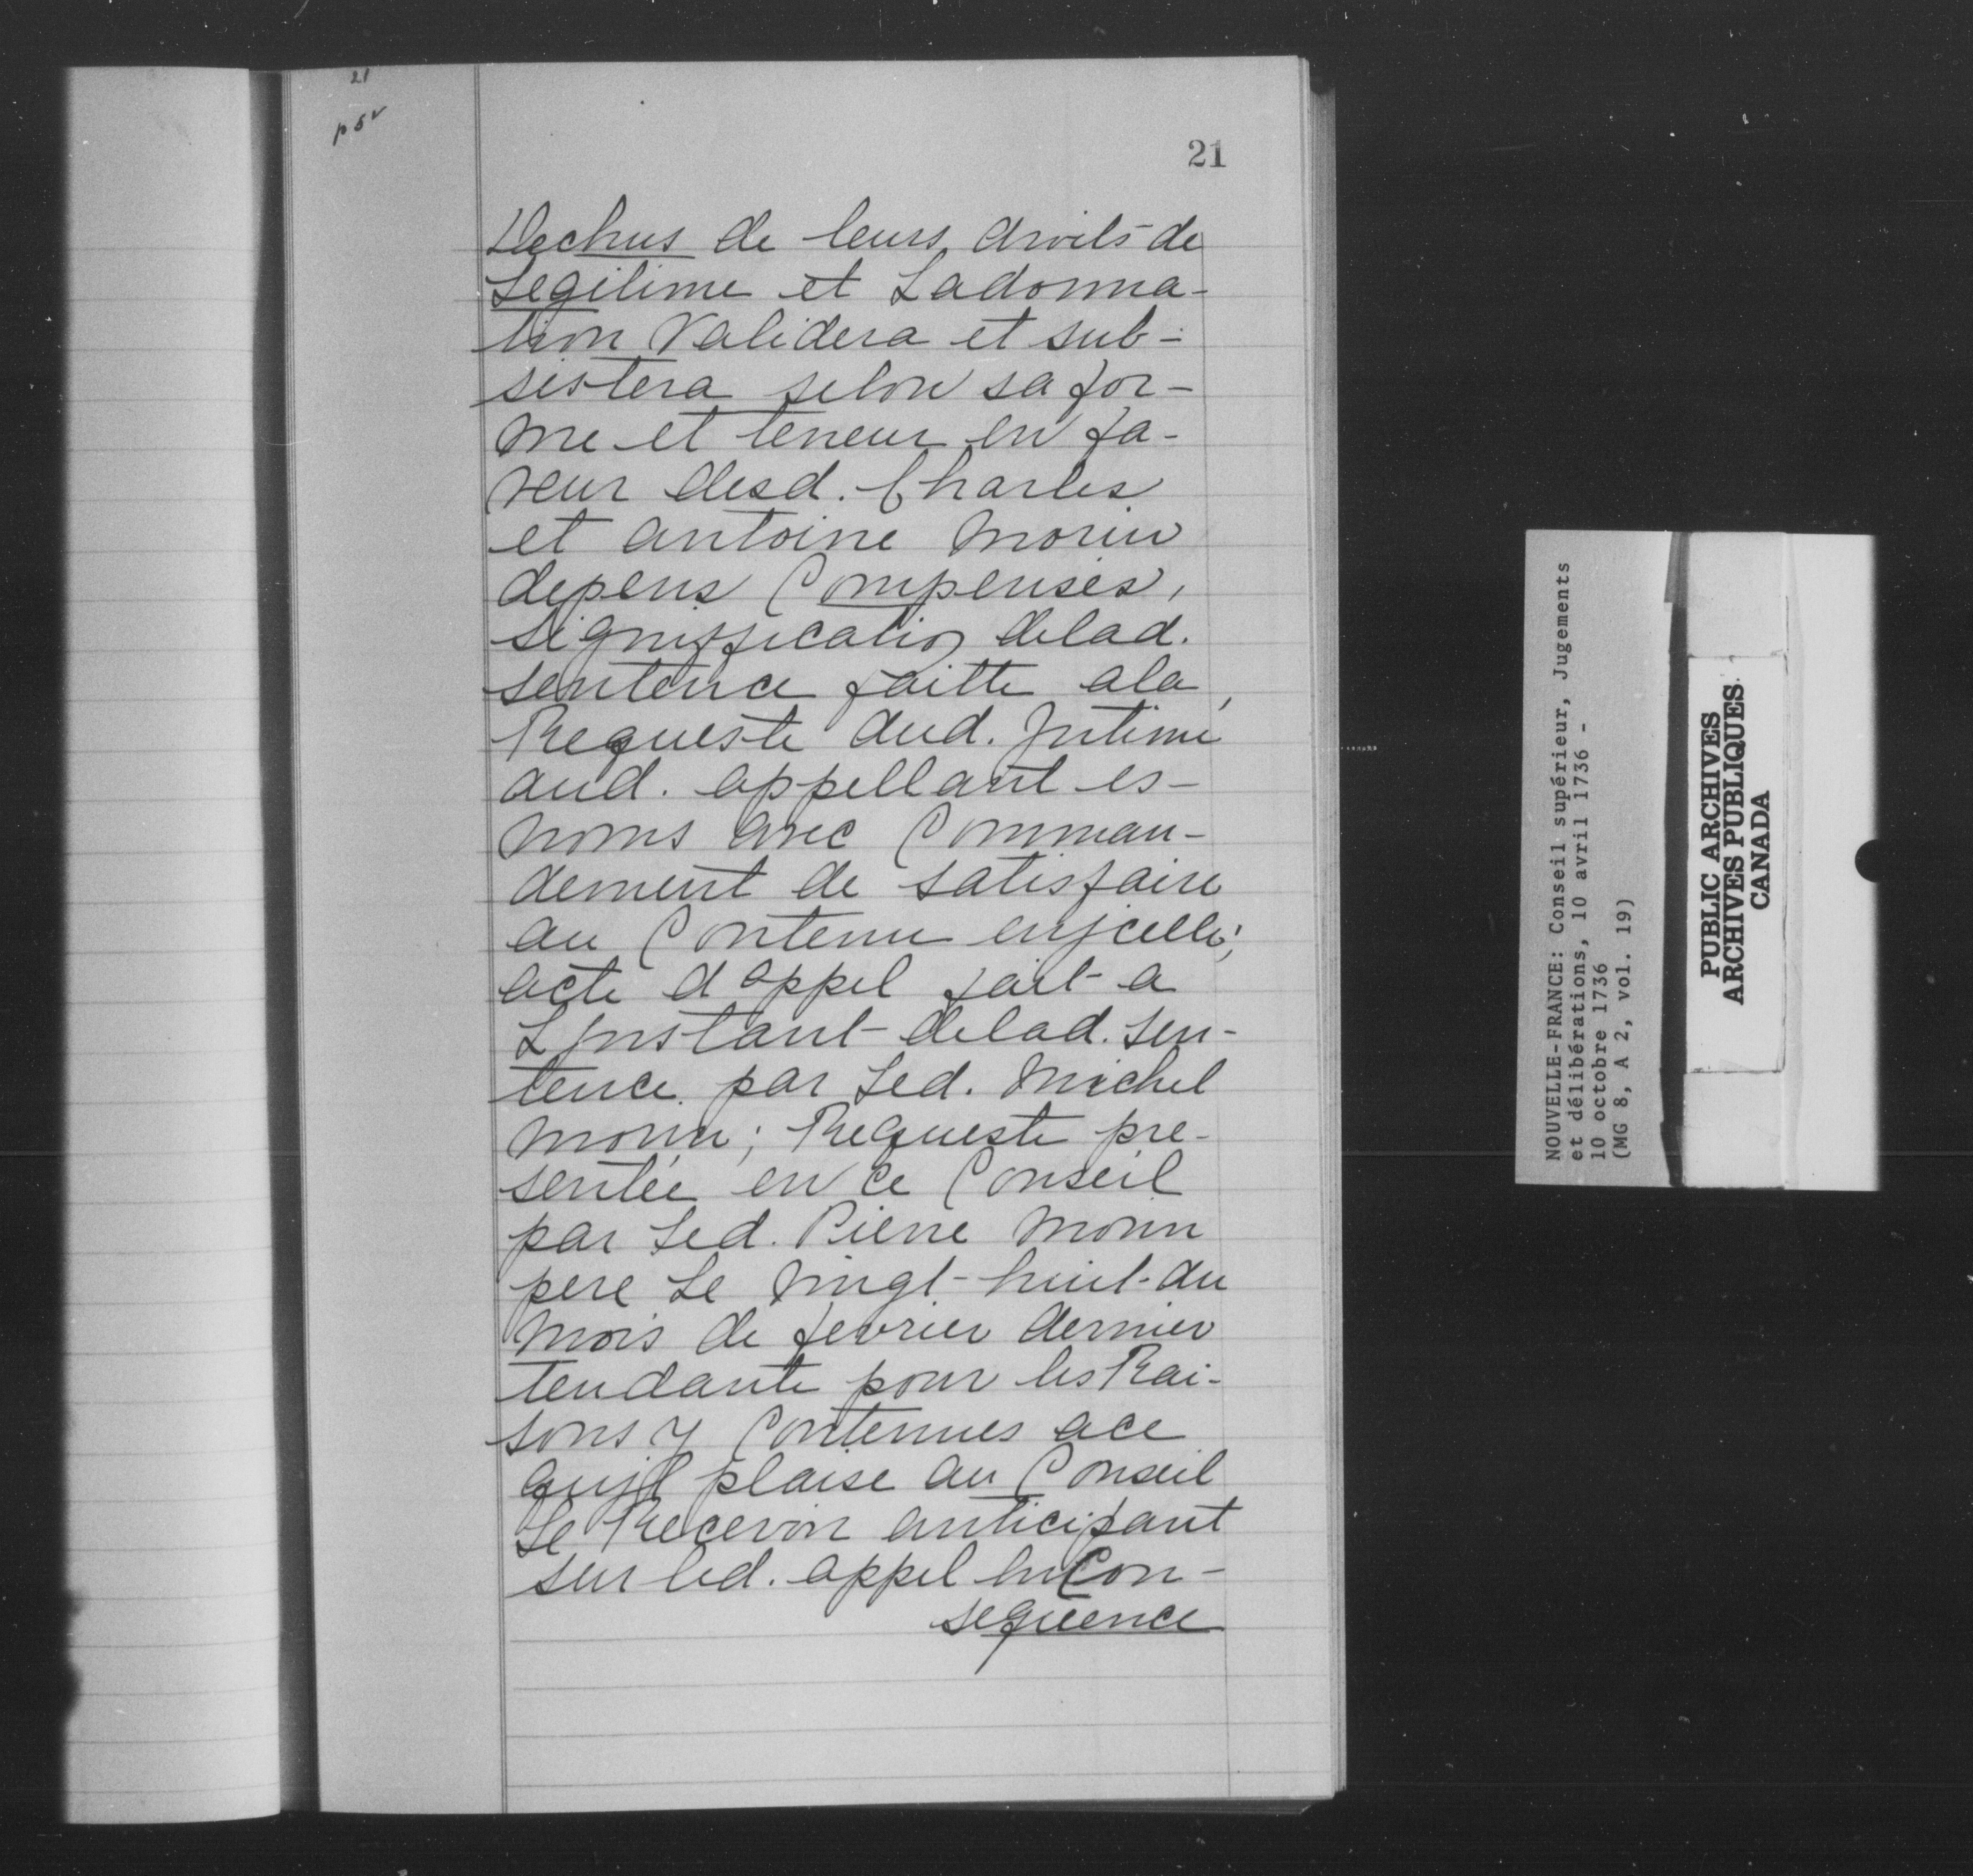 21
p 5 v
21
Dechus de leurs droits de
Legitime et Ladonna-
tion Validera et sub-
sistera selon sa for-
me et teneur en fa-
veur desd. Charles
et antoine Morin
depens Compensés,
Signiffication delad.
sentence faitte ala
Requeste dud. Intimé
aud. appellant es-
noms avec Comman-
dement de satisfaire
au Contenu enjcelle;
acte d appel fait a
L jnstant delad. sen-
tence par Led. Michel
Morin; Requeste pre-
sentée en ce Conseil
par Led. Pierre Morin
pere Le Vingt-huit du
Mois de fevrier dernier
tendante pour les Rai-
sons y Contenues ace
qujl plaise au Conseil
Le Recevoir anticipant
sur led. appel en Con-
sequence
NOUVELLE-FRANCE: Conseil supérieur, Jugements
et délibérations, 10 avril 1736 -
10 octobre 1736
(MG 8, A 2, vol. 19)
PUBLIC ARCHIVES
ARCHIVES PUBLIQUES
CANADA